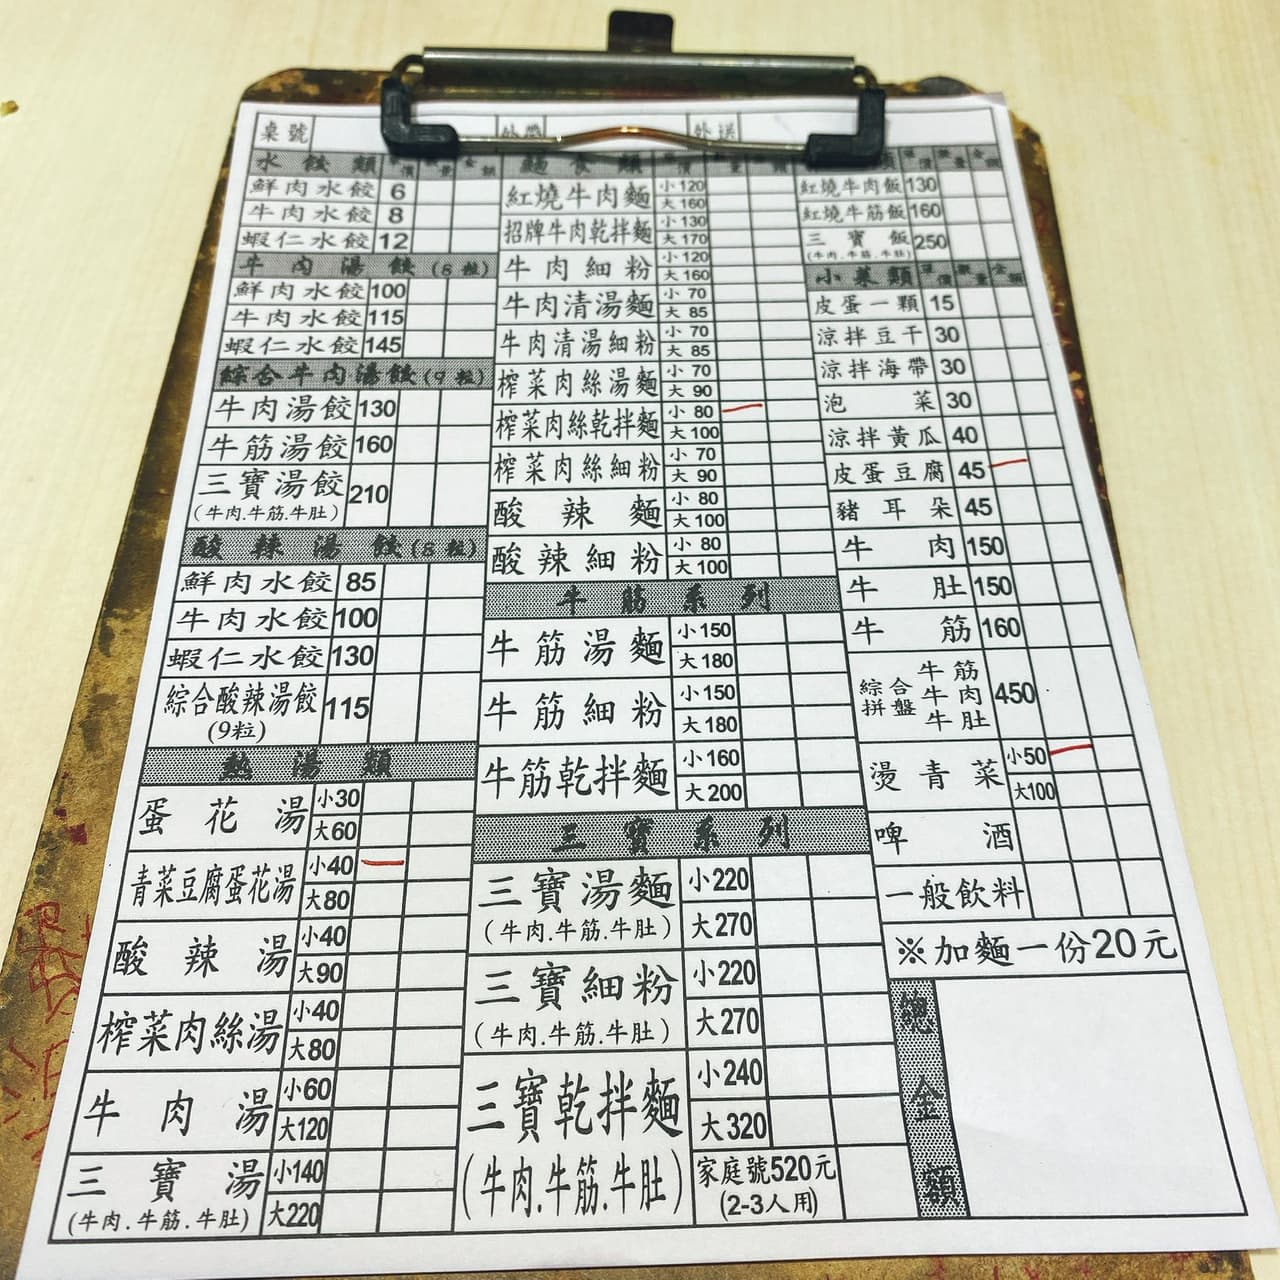 桌號 外帶 外送
水餃類 單價 數量 金額
鮮肉水餃 6
牛肉水餃 8
蝦仁水餃 12
牛肉湯餃(8粒)
鮮肉水餃 100
牛肉水餃 115
蝦仁水餃 145
綜合牛肉湯餃(9粒)
牛肉湯餃 130
牛筋湯餃 160
三寶湯餃 210
(牛肉.牛筋.牛肚)
酸辣湯餃(8粒)
鮮肉水餃 85
牛肉水餃 100
蝦仁水餃 130
綜合酸辣湯餃 115
(9粒)
熱湯類
蛋花湯 小30
大60
青菜豆腐蛋花湯 小40
大80
酸辣湯 小40
大90
榨菜肉絲湯 小40
大80
牛肉湯 小60
大120
三寶湯 小140
(牛肉.牛筋.牛肚) 大220
麵食類 單價 數量 金額
紅燒牛肉麵 小120
大160
招牌牛肉乾拌麵 小130
大170
牛肉細粉 小120
大160
牛肉清湯麵 小70
大85
牛肉清湯細粉 小70
大85
榨菜肉絲湯麵 小70
大90
榨菜肉絲乾拌麵 小80
大100
榨菜肉絲細粉 小70
大90
酸辣麵 小80
大100
酸辣細粉 小80
大100
牛筋系列
牛筋湯麵 小150
大180
牛筋細粉 小150
大180
牛筋乾拌麵 小160
大200
三寶系列
三寶湯麵 小220
(牛肉.牛筋.牛肚) 大270
三寶細粉 小220
(牛肉.牛筋.牛肚) 大270
三寶乾拌麵 小240
大320
(牛肉.牛筋.牛肚) 家庭號520元
(2-3人用)
類 單價 數量 金額
紅燒牛肉飯 130
紅燒牛筋飯 160
三寶飯 250
(牛肉.牛筋.牛肚)
小菜類 單價 數量 金額
皮蛋一顆 15
涼拌豆干 30
涼拌海帶 30
泡菜 30
涼拌黃瓜 40
皮蛋豆腐 45
豬耳朵 45
牛肉 150
牛肚 150
牛筋 160
綜合拼盤 牛筋 牛肉 牛肚 450
燙青菜 小50
大100
啤酒
一般飲料
※加麵一份20元
總金額